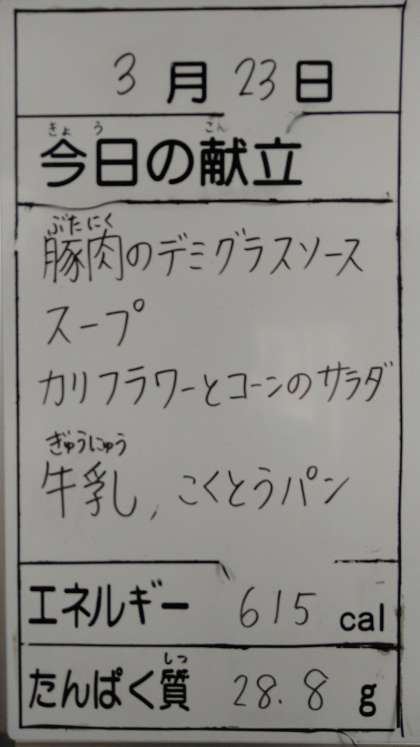 3月23日
きょう こん
今日の献立
ぶたにく
豚肉のデミグラスソース
スープ
カリフラワーとコーンのサラダ
ぎゅうにゅう
牛乳, こくとうパン
エネルギー 615 cal
しつ
たんぱく質 28.8 g